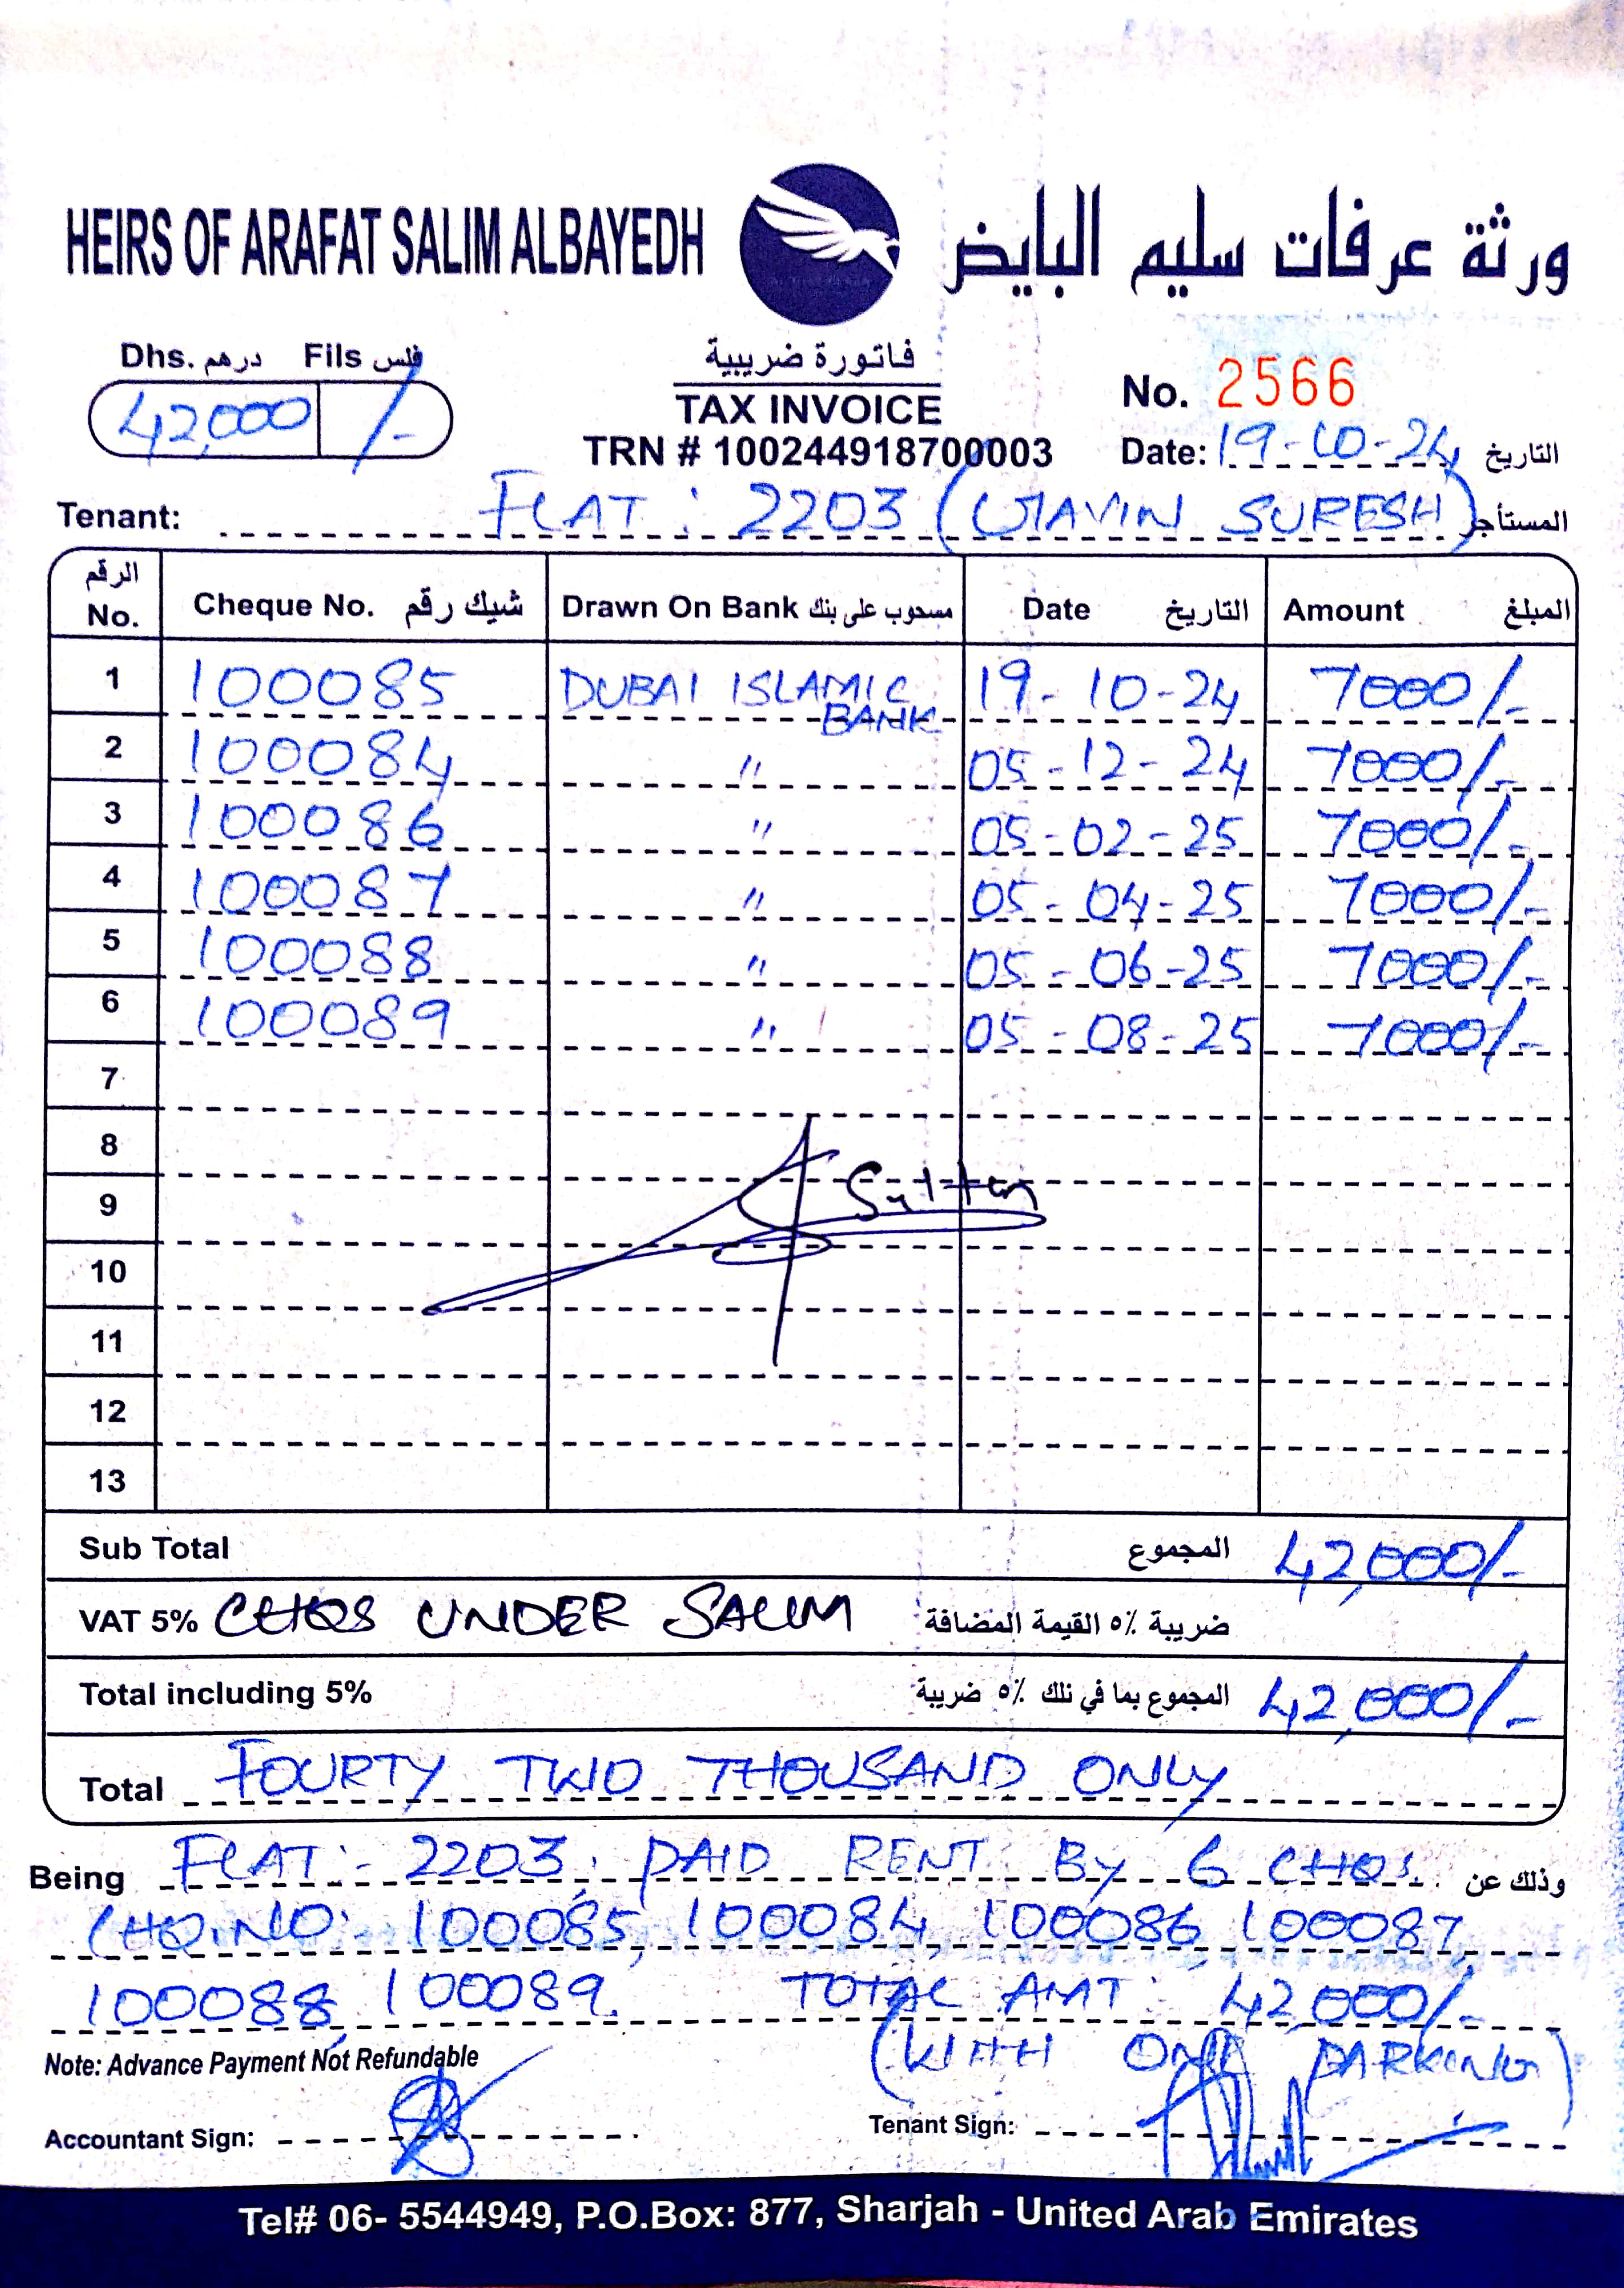 HEIRS OF ARAFAT SALIM ALBAYEDH ورثة عرفات سليم البايض
Dhs. درهم Fils فلس
42,000 /-
فاتورة ضريبية
TAX INVOICE
TRN # 100244918700003
No. 2566
Date: 19-10-24 التاريخ
Tenant: FLAT: 2203 (JAVIN SURESH) المستأجر
الرقم No. Cheque No. شيك رقم Drawn On Bank مسحوب على بنك Date التاريخ Amount المبلغ
1 100085 DUBAI ISLAMIC BANK 19-10-24 7000/-
2 100084 " 05-12-24 7000/-
3 100086 " 05-02-25 7000/-
4 100087 " 05-04-25 7000/-
5 100088 " 05-06-25 7000/-
6 100089 " 05-08-25 7000/-
7
8
9 Sultan
10
11
12
13
Sub Total المجموع 42,000/-
VAT 5% CHQS UNDER SALIM ضريبة ٥٪ القيمة المضافة
Total including 5% المجموع بما في ذلك ٥٪ ضريبة 42,000/-
Total FOURTY TWO THOUSAND ONLY
Being FLAT:- 2203, PAID RENT BY 6 CHQS. وذلك عن
CHQ.NO: 100085, 100084, 100086 100087,
100088, 100089. TOTAL AMT: 42,000/-
(WITH ONE PARKING)
Note: Advance Payment Not Refundable
Accountant Sign: Tenant Sign:
Tel# 06- 5544949, P.O.Box: 877, Sharjah - United Arab Emirates